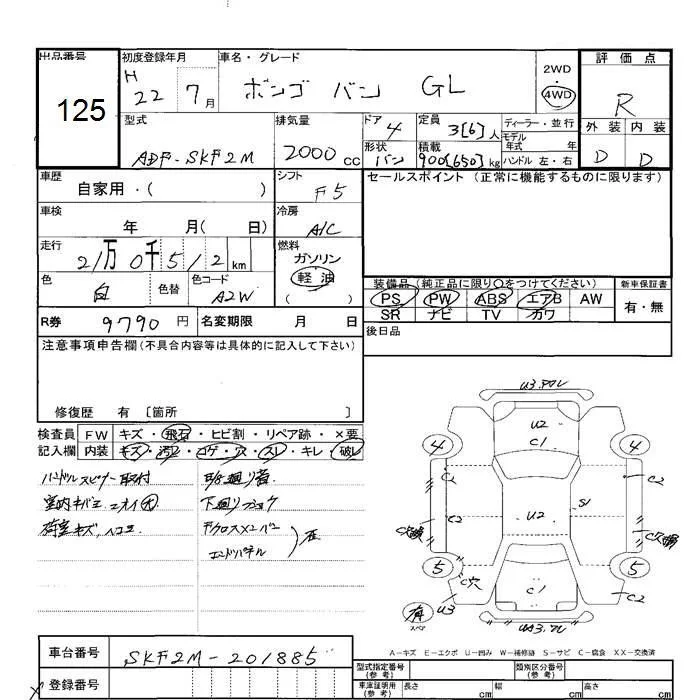 出品番号 125
初度登録年月 H 22 7月
車名・グレード ボンゴ バン GL
2WD・4WD
評価点 R
外装 D 内装 D
型式 ADF-SKF2M
排気量 2000cc
ドア 4
定員 3[6]人
ディーラー・並行
モデル年式 年
形状 バン
積載 900[650]kg
ハンドル 左・右
車歴 自家用・( )
シフト F5
セールスポイント (正常に機能するものに限ります)
車検 年 月( 日)
冷房 A/C
走行 21万0千512km
燃料 ガソリン 軽油 ( )
色 白 色替 色コード A2W
装備品(純正品に限り○をつけてください)
新車保証書 有・無
PS PW ABS エアB AW
SR ナビ TV カワ
R券 9790円 名変期限 月 日
後日品
注意事項申告欄(不具合内容等は具体的に記入して下さい)
修復歴 有 [箇所 ]
検査員記入欄
FW キズ・飛石・ヒビ割・リペア跡・×要
内装 キズ・汚レ・コゲ・穴・スレ・キレ・破レ
ハンドルスピナー取付
下廻りサビ
荷室キズ、ヘコミ
エンドパネル
U3
U2
C1
4 4
C2 C2
C2 U2 S1
C穴
5 5
C穴 C1 C2
U3
有 スペア
A-キズ E-エクボ U-凹み W-補修跡 S-サビ C-腐食 XX-交換済
車台番号 SKF2M-201885
登録番号
型式指定番号(参考) 類別区分番号(参考)
車庫証明用(参考) 長さ cm 幅 cm 高さ cm